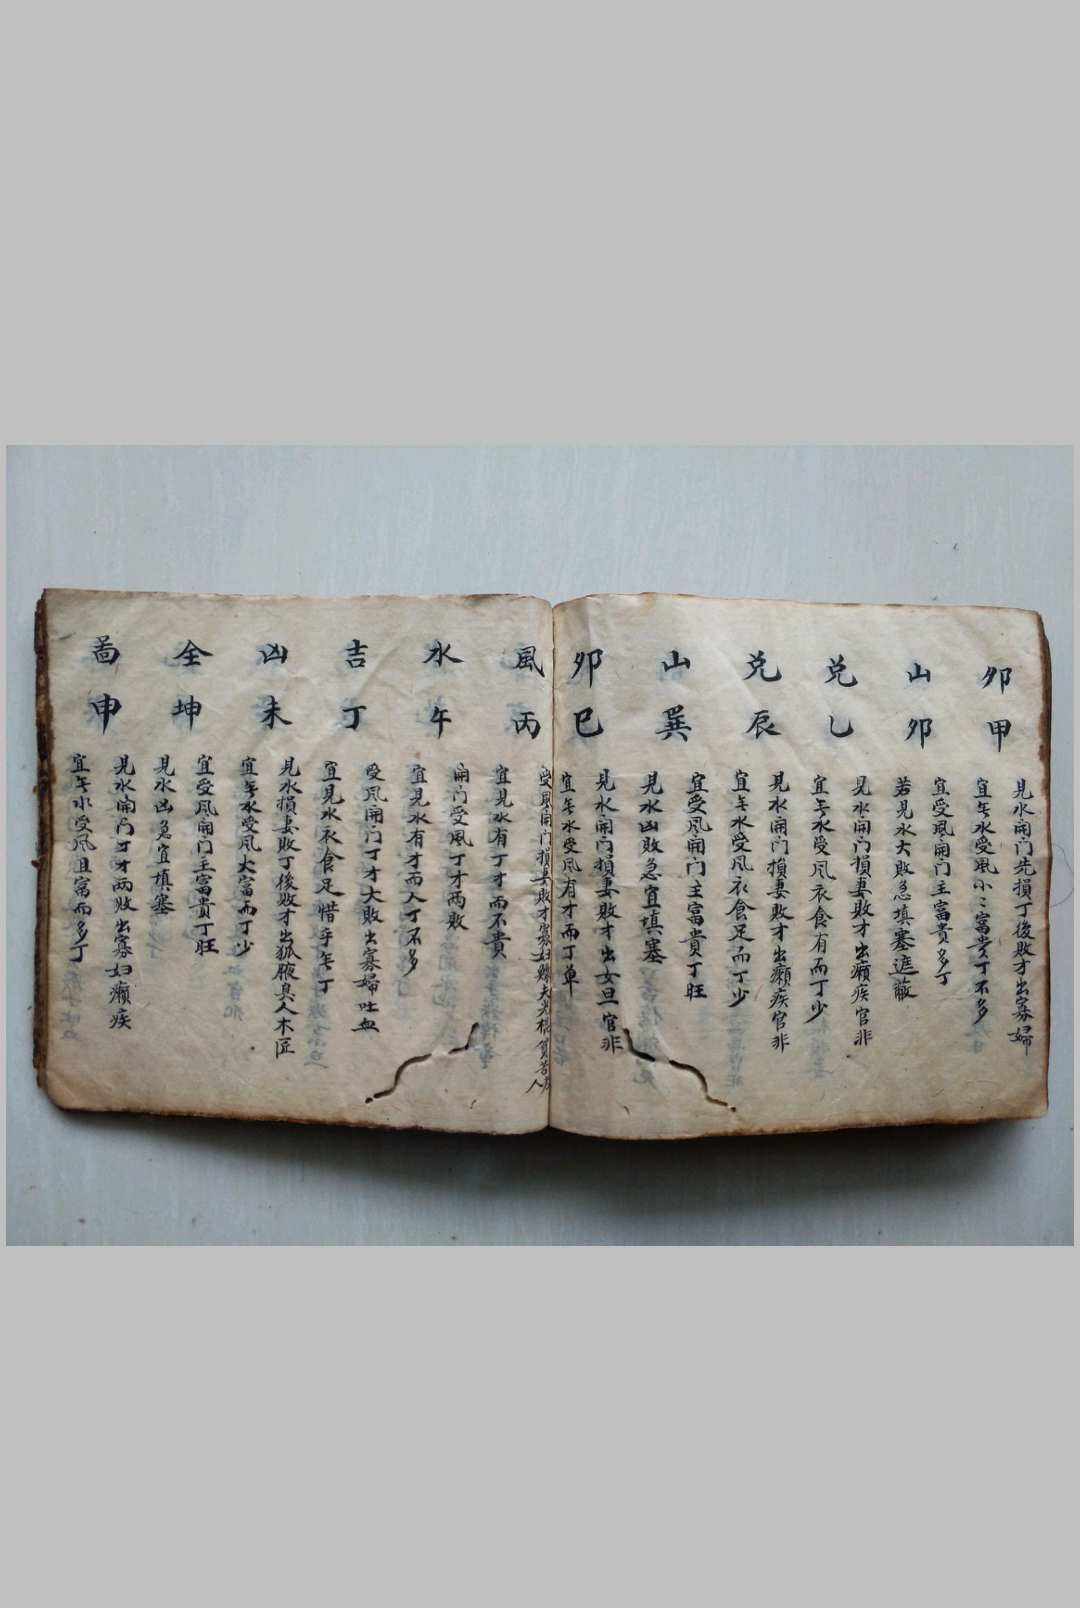 卯甲
見水開门先損丁後敗才出寡婦
宜无水受風小〻富贵丁不多
山卯
宜受風開门主富貴多丁
若見水大敗急填塞遮蔽
兑乙
見水開门損妻敗才出癩疾官非
宜无水受风衣食有而丁少
兑辰
見水開门損妻敗才出癩疾官非
宜无水受风衣食足而丁少
山巽
宜受风開门主富貴丁旺
見水凶敗急宜填塞
卯巳
見水開门損妻敗才出女旦官非
宜无水受风有才而丁单
風丙
受風開门損妻敗才寡妇
宜見水有丁才而不貴
水午
開门受風丁才两败
宜見水有才而人丁不多
吉丁
受风開门丁才大敗出寡婦吐血
宜見水衣食足惜乎无丁
凶未
見水損妻敗丁後敗才出狐腋臭人木匠
宜无水受风大富而丁少
全坤
宜受风開门主富贵丁旺
見水凶急宜填塞
啚申
見水開门丁才两败出寡妇癩疾
宜无水受风且富而多丁